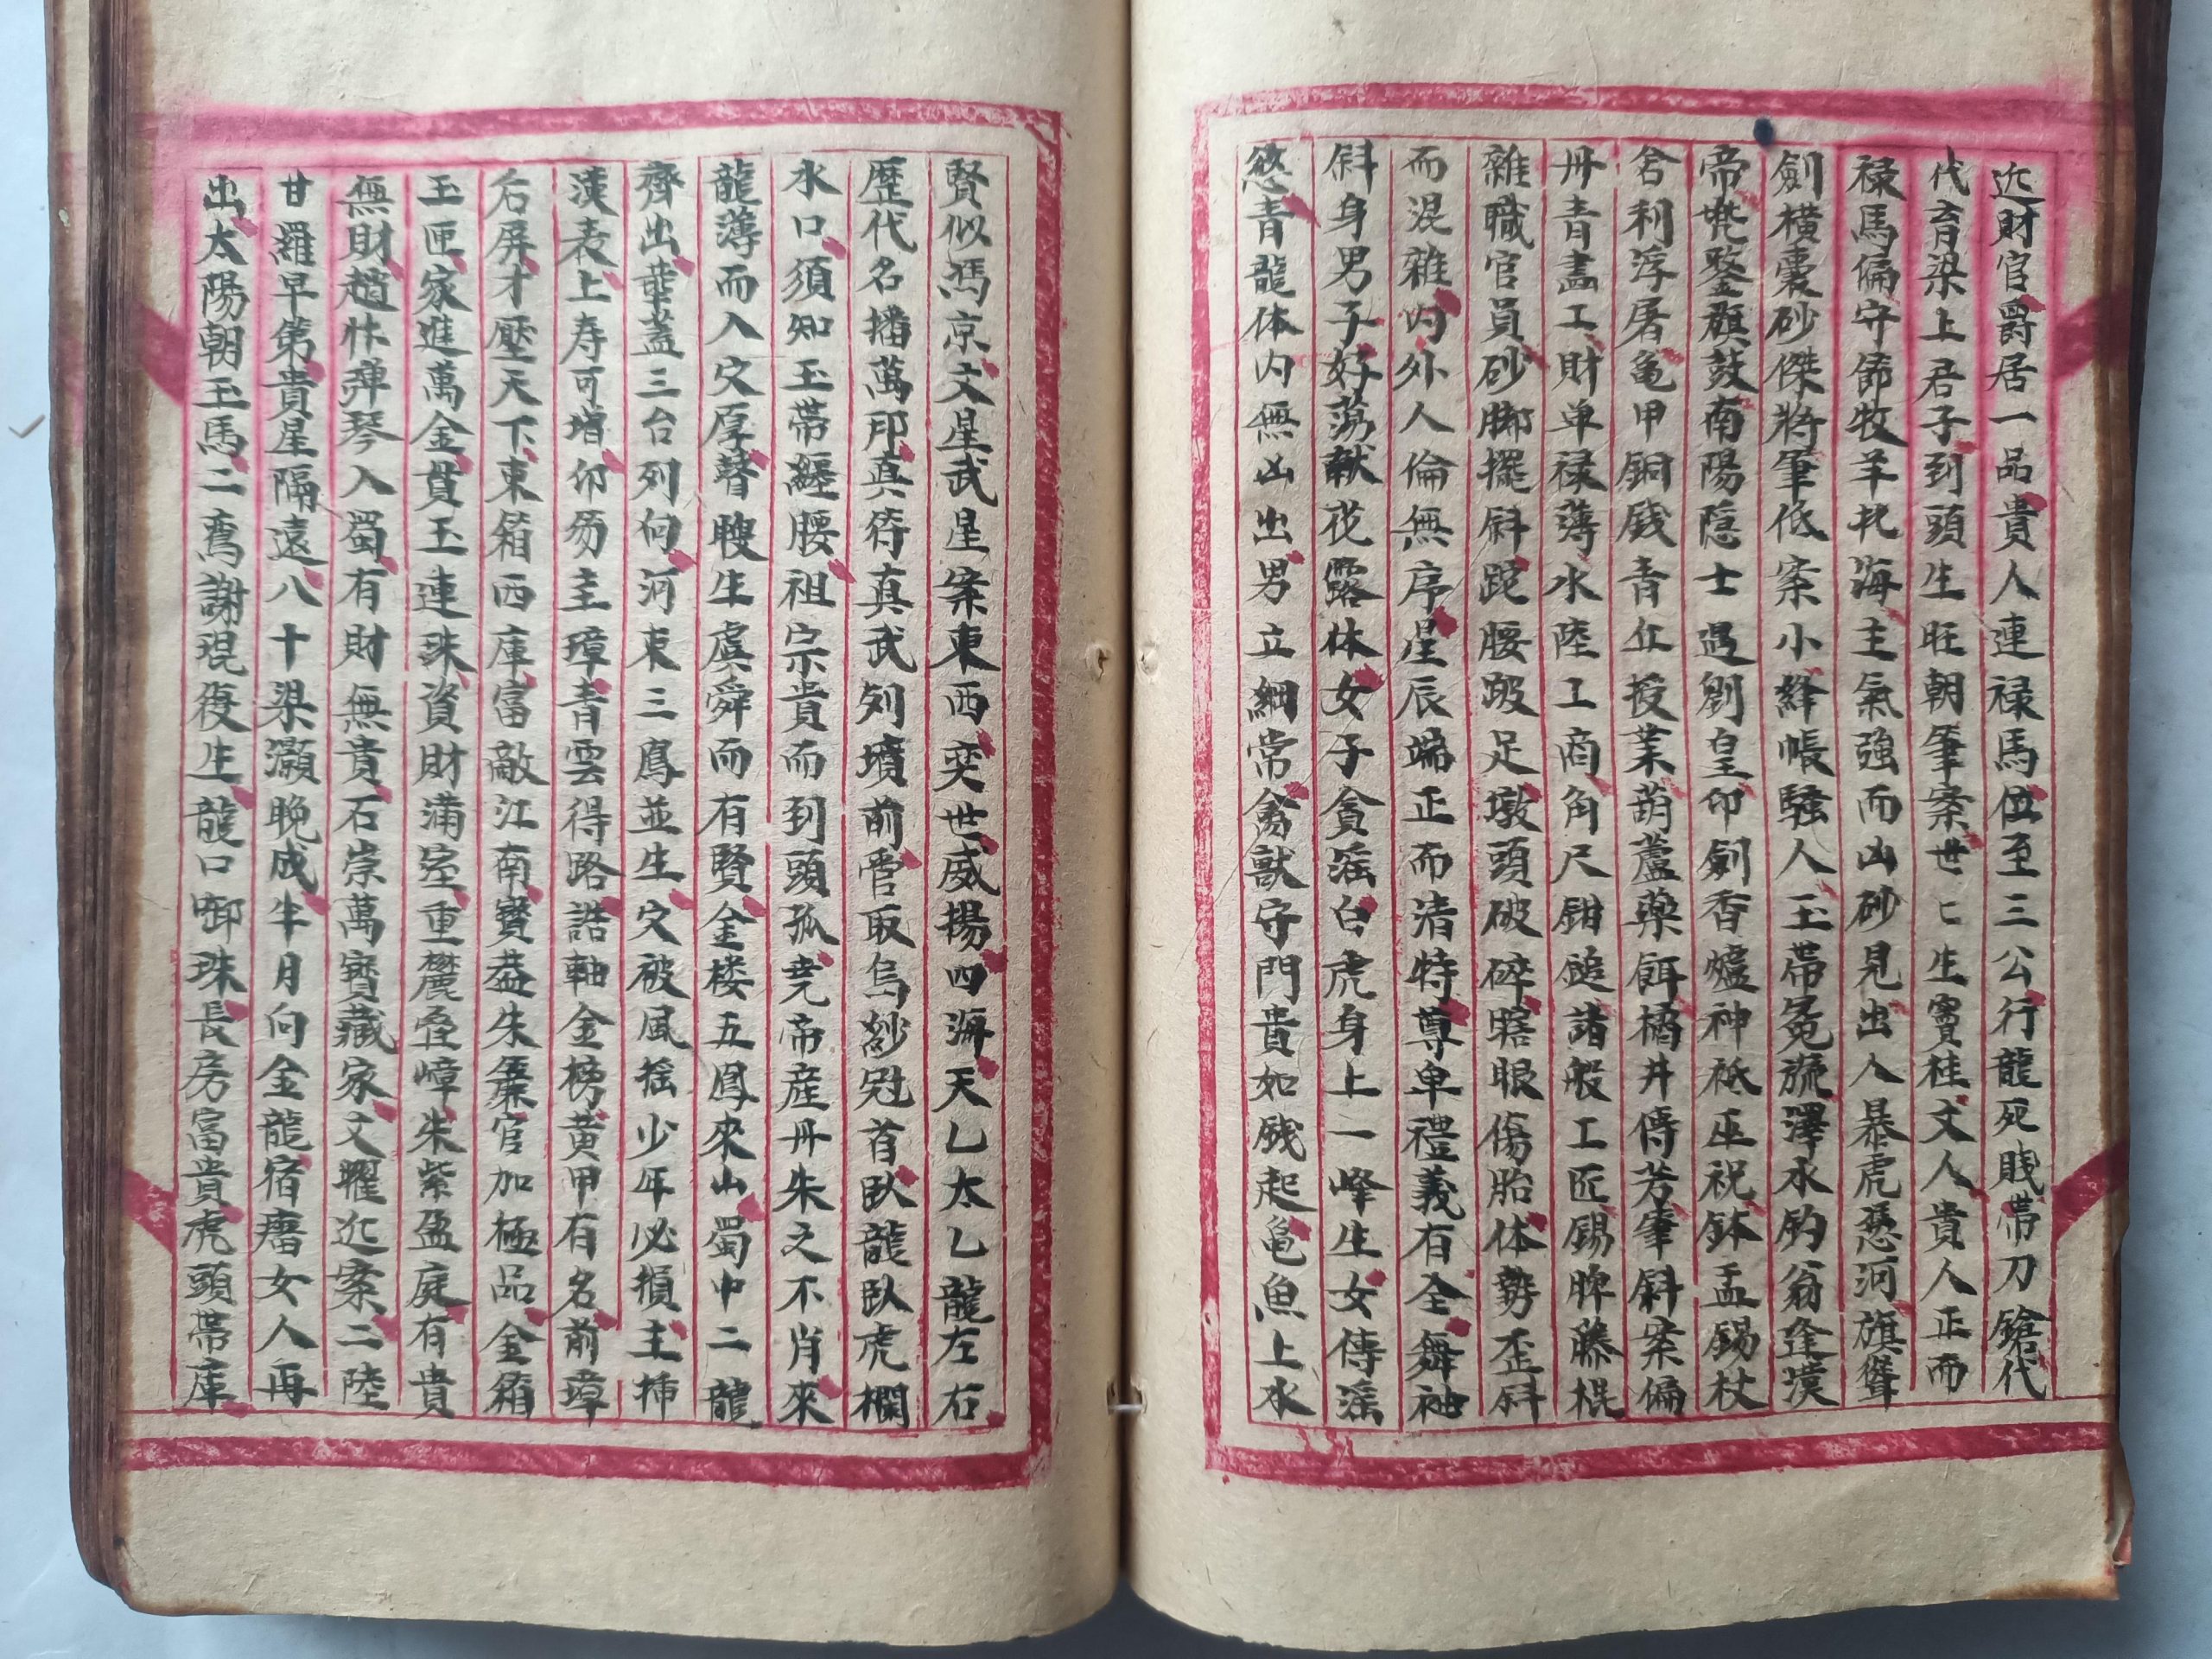 近財官爵居一品貴人連禄馬位至三公行龍死賤帶刀鎗代
代育梁上君子到頭生旺朝筆案世匕生寳桂文人貴人正而
禄馬偏守節牧羊北海主氣強而凶砂見出人暴虎憑河旗聳
劍橫裹砂傑將筆低案小絳帳騷人玉帶冕旒澤水釣翁逢漢
帝鼓南陽隱士遇劉皇印劍香爐神祗巫祝鉢盂錫杖
舍利浮屠亀甲銅銭青丘授業葫蘆藥餌橘井傳芳筆斜案偏
丹青畵工財单禄薄水陸工商角尺鉗鎚諸般工匠錫牌藤棍
雜職官員砂脚擺斜跎腰跛足墩頭破碎瞎眼傷胎体勢歪斜
而混雜内外人倫無序星辰端正而清特尊卑禮義有全舞袖
斜身男子好蕩献花露体女子貪滛白虎身上一峰生女傳滛
慾青龍体内無凶出男立綱常禽獸守門貴如賤起亀魚上水
賢似馮京文星武星案東西奕世威揚四海天乙太乙龍左右
歷代名播萬邦真待真武列墳前管取烏紗冠首臥龍臥虎欄
水口須知玉帶纏腰祖宗貴而到頭孤尭帝産丹朱之不肖來
龍薄而入穴厚瞽瞍生虞舜而有賢金楼五鳳來山蜀中二龍
齊出華蓋三台列向河東三鳳並生穴被風搖少年必損主揷
漢表上寿可增印笏主璋青雲得路誥軸金榜黄甲有名前璋
右屏才壓天下東箱西庫富敵江南寳蓋朱簾官加極品金箱
玉匣家進萬金貫玉連珠資財满室重麓疊嶂朱紫盈庭有貴
無財趙忭弹琴入蜀有財無貴石崇萬寳藏家文曜近案二陸
甘羅早第貴星隔遠八十梁灝晚成半月向金龍宿瘤女人再
出太陽朝玉馬二喬謝琨復生龍口啣珠長房富貴虎頭帶庫